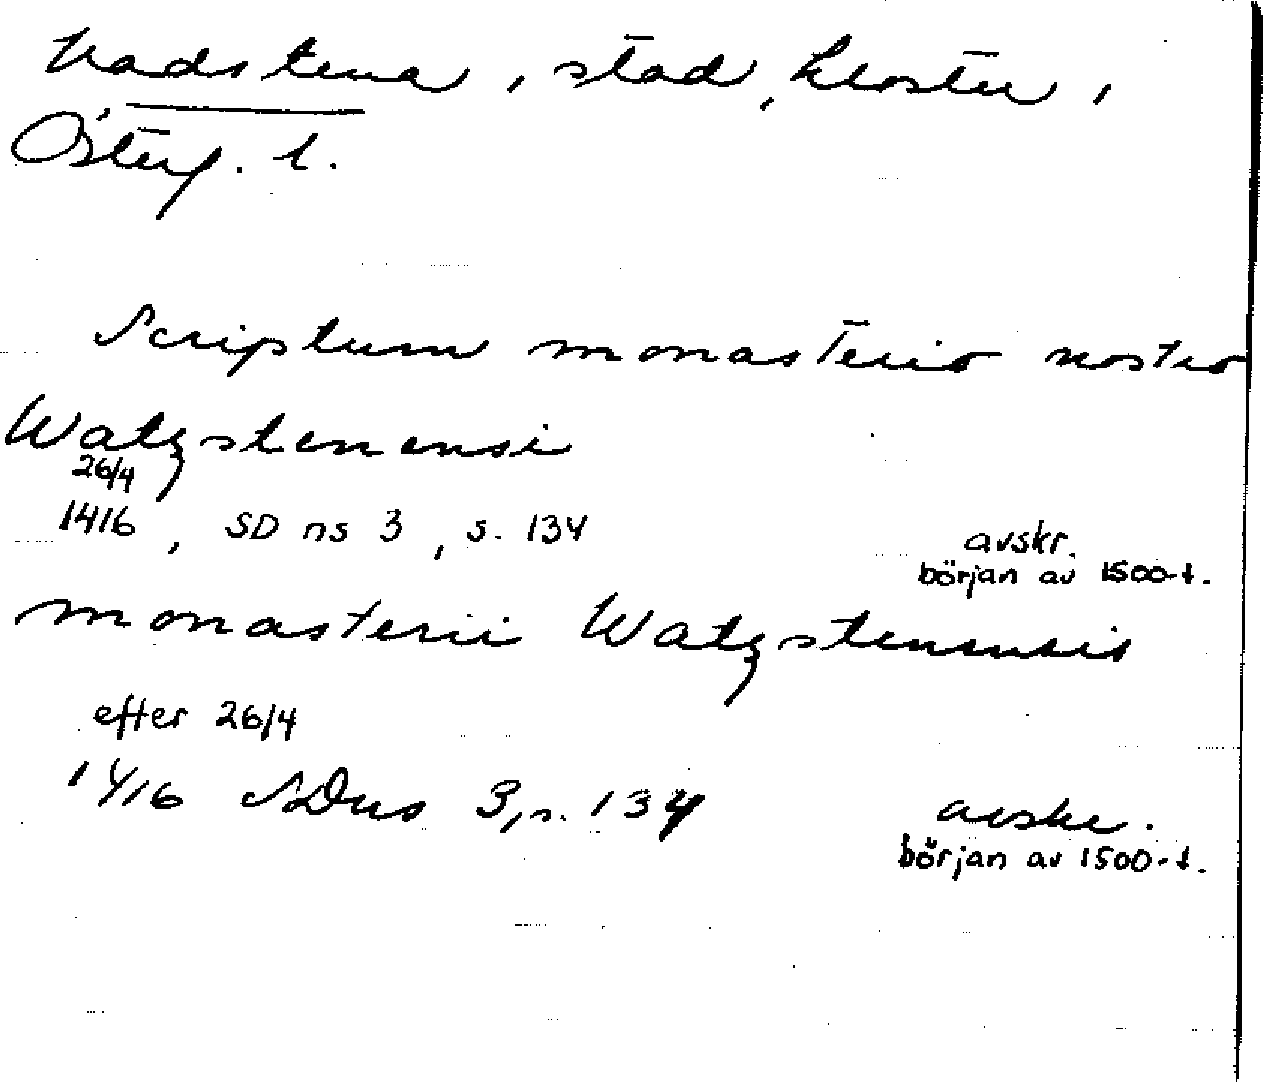 Vadstena, stad, kloster,
Österg. l.
Scriptum monasterio nostro
Watzstenensi
26/4
1416, SD ns 3, s. 134
avskr.
början av 1500-t.
monasterii Watzstenensis
efter 26/4
1416 SDns 3, s. 134
avskr.
början av 1500-t.